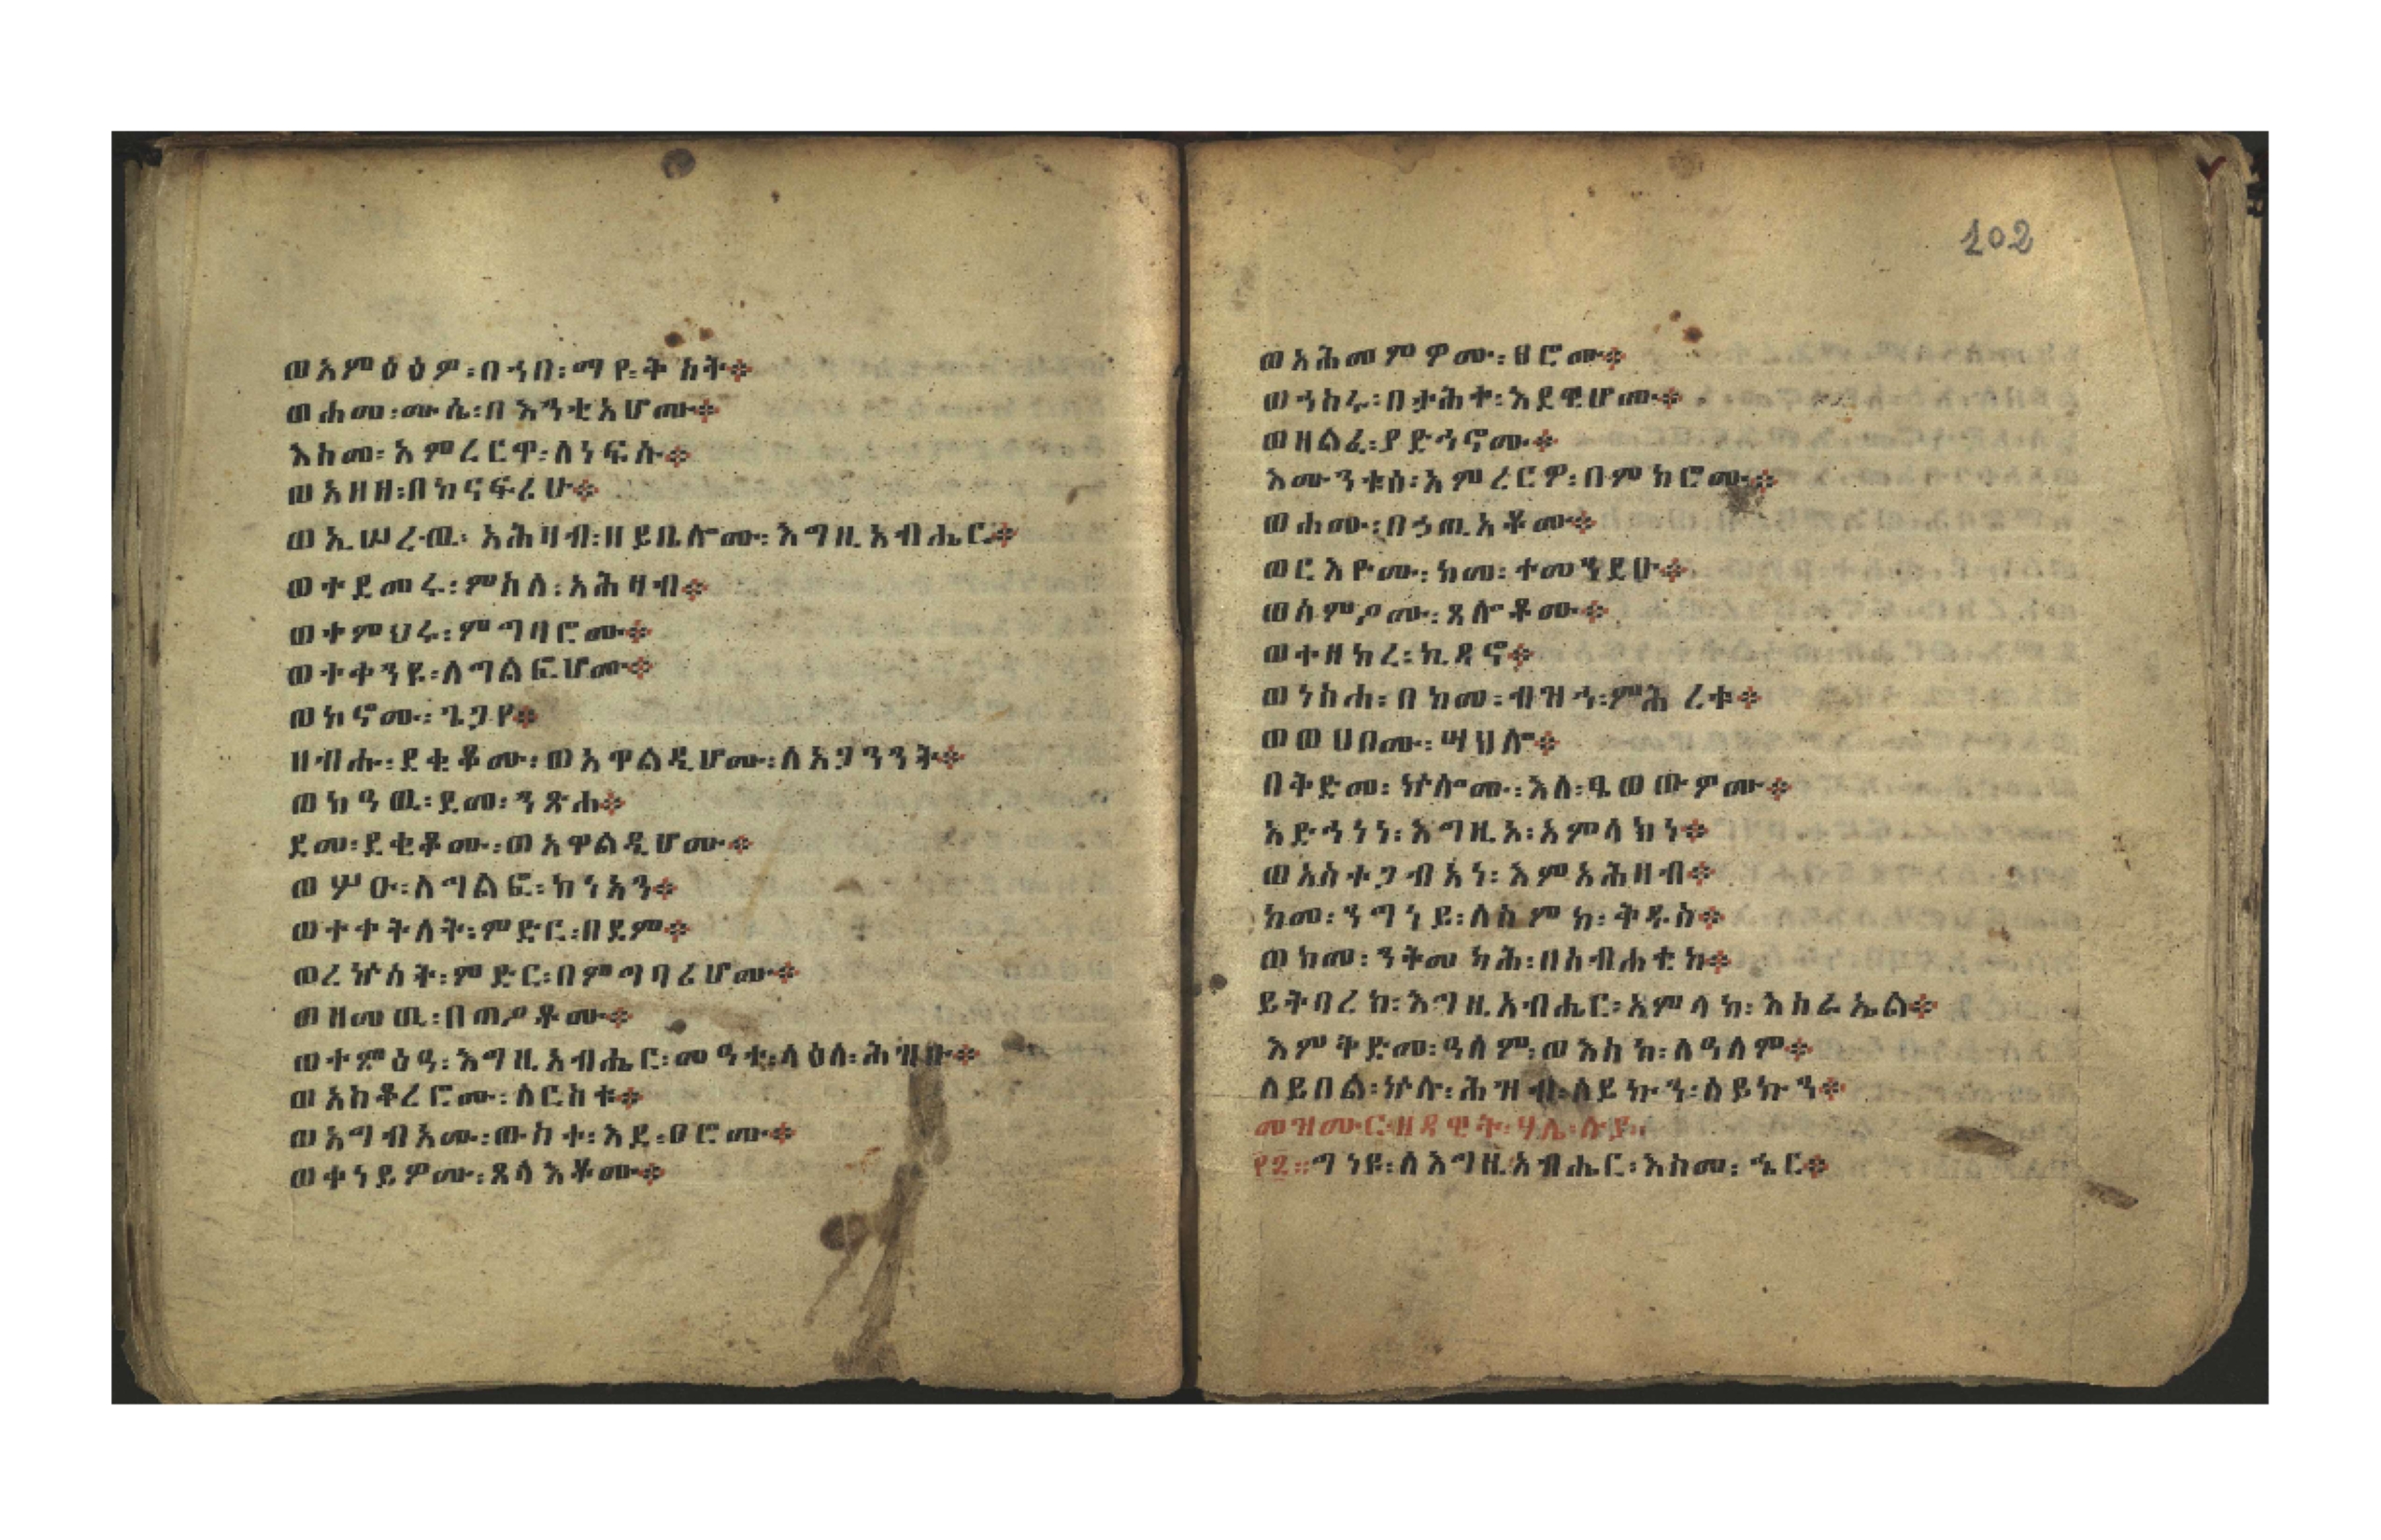 ወአምዕዕዎ፡በኀበ፡ማየ፡ትኸት።
ወሐመ፡ሙሴ፡በእንቲአሆሙ።
እስመ፡አምረርዋ፡ለነፍሱ።
ወአዘዘ፡በከናፍሪሁ።
ወኢሠረዉ፡አሕዛብ፡ዘይቤሎሙ፡እግዚአብሔር።
ወተደመሩ፡ምስለ፡አሕዛብ።
ወተምህሩ፡ምግባሮሙ።
ወተቀንዩ፡ለግልፎሆሙ።
ወኮኖሙ፡ጌጋየ።
ዘብሑ፡ደቂቆሙ፡ወአዋልዲሆሙ፡ለአጋንንት።
ወከዓዉ፡ደመ፡ንጹሐ።
ደመ፡ደቂቆሙ፡ወአዋልዲሆሙ።
ወሦዑ፡ለግልፎ፡ከነአን።
ወተቀትለት፡ምድር፡በደም።
ወረኵሰት፡ምድር፡በምግባሪሆሙ።
ወዘመዉ፡በጣዖቶሙ።
ወተምዕዓ፡እግዚአብሔር፡መዓተ፡ላዕለ፡ሕዝቡ።
ወአስቆረሮሙ፡ለርስቱ።
ወአግብአሙ፡ውስተ፡እደ፡ፀሮሙ።
ወተነይዎሙ፡ጸላእቶሙ።
ወአሕመምዎሙ፡ፀሮሙ።
ወኀስሩ፡በታሕተ፡እደዊሆሙ።
ወዘልፈ፡ያድኅኖሙ።
እሙንቱሰ፡አምረርዎ፡በምክሮሙ።
ወሐሙ፡በኃጢአቶሙ።
ወርእዮሙ፡ከመ፡ተመንደቡ።
ወሰምዖሙ፡ጸሎቶሙ።
ወተዘከረ፡ኪዳኖ።
ወነስሐ፡በከመ፡ብዝኀ፡ምሕረቱ።
ወወሀቦሙ፡ሣህሎ።
በቅድመ፡ኵሎሙ፡እለ፡ፄወውዎሙ።
አድኅነነ፡እግዚኦ፡አምላክነ።
ወአስተጋብአነ፡እምአሕዛብ።
ከመ፡ንግነይ፡ለስምከ፡ቅዱስ።
ወከመ፡ንትመካሕ፡በስብሐቲከ።
ይትባረክ፡እግዚአብሔር፡አምላከ፡እስራኤል።
እምቅድመ፡ዓለም፡ወእስከ፡ለዓለም።
ለይበል፡ኵሉ፡ሕዝብ፡ለይኩን፡ለይኩን።
መዝሙር፡ዘዳዊት፡ሃሌ፡ሉያ።
ግነዩ፡ለእግዚአብሔር፡እስመ፡ኄር።
102